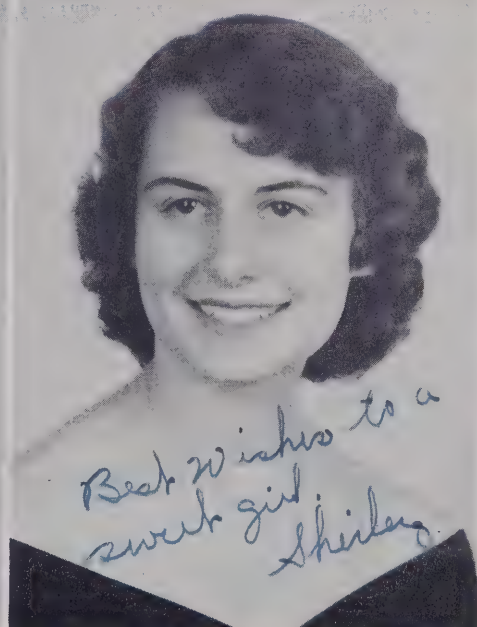 Best Wishes to a
sweet girl.
Shirley